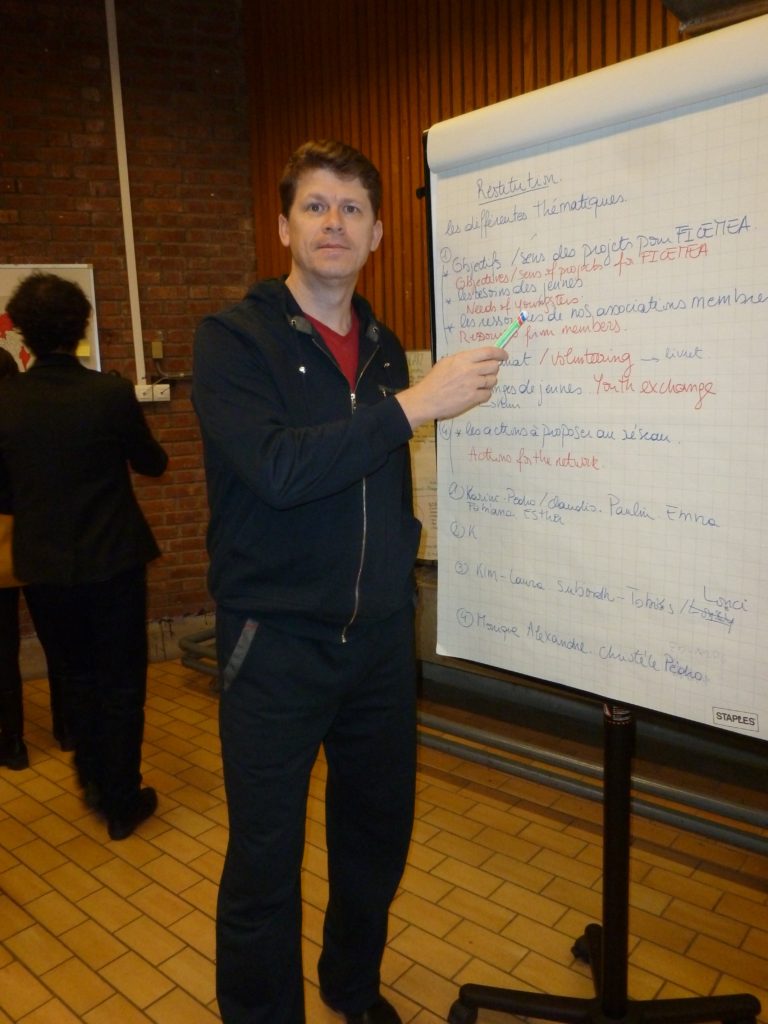 Restitution.
les différentes Thématiques.
①
* Objectifs / sens des projets pour FICEMEA
Objectives / sens of projects for FICEMEA
* les besoins des jeunes
Needs of youngsters
* les ressources de nos associations membres
from members.
/ volunteering → livret
de jeunes. Youth exchange
④ * les actions à proposer au réseau.
Actions for the network.
① Karine. Pedro / Claudio. Paulin. Emna
Fabiana Esther
② K
Lorici
③ Kim - Laura Subodh - Tobias /
④ Monique Alexandre. Christèle Pédro
STAPLES